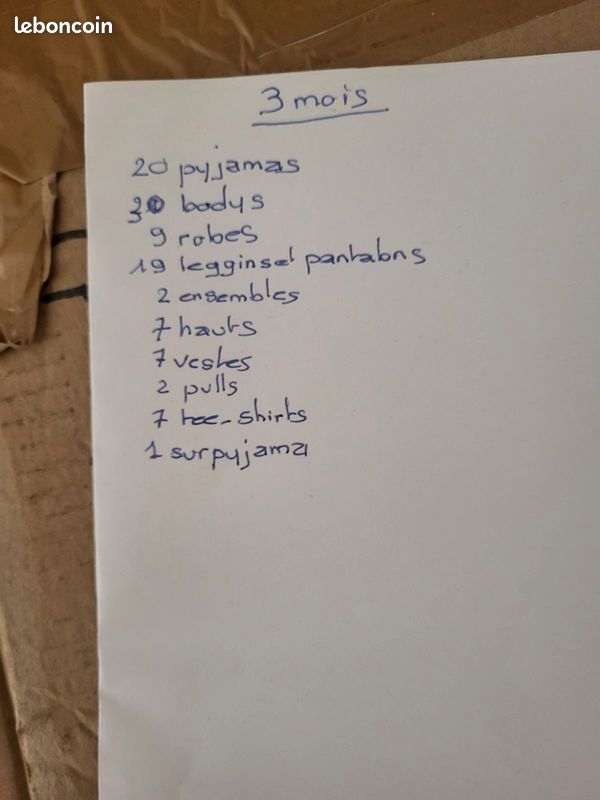 leboncoin
3 mois
20 pyjamas
30 bodys
9 robes
19 legginset pantalons
2 ensembles
7 hauts
7 vestes
2 pulls
7 tee-shirts
1 surpyjama